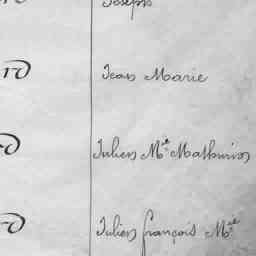 Joseph
rd Jean Marie
rd Julien Mie Mathurin
rd Julien françois Mie